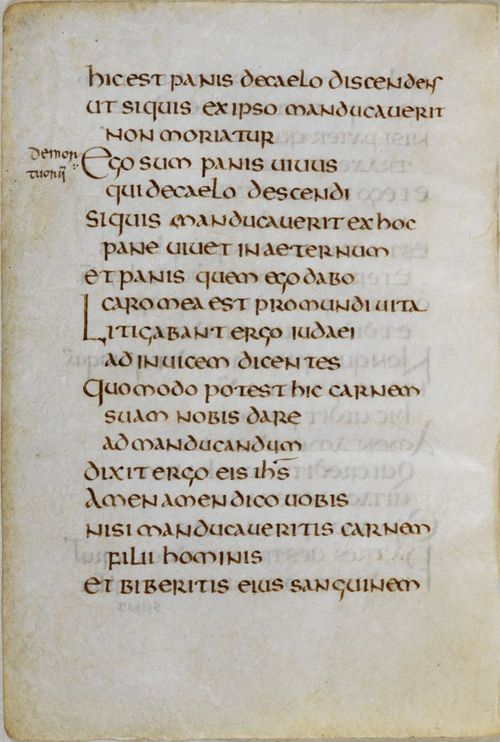 hic est panis de caelo discendens
ut siquis ex ipso manducauerit
non moriatur
demor
tuorū
Ego sum panis uiuus
qui de caelo descendi
siquis manducauerit ex hoc
pane uiuet in aeternum
et panis quem ego dabo
caro mea est pro mundi uita
Litigabant ergo iudaei
ad inuicem dicentes
Quomodo potest hic carnem
suam nobis dare
ad manducandum
dixit ergo eis ihs̄
Amen amen dico uobis
nisi manducaueritis carnem
filii hominis
et biberitis eius sanguinem